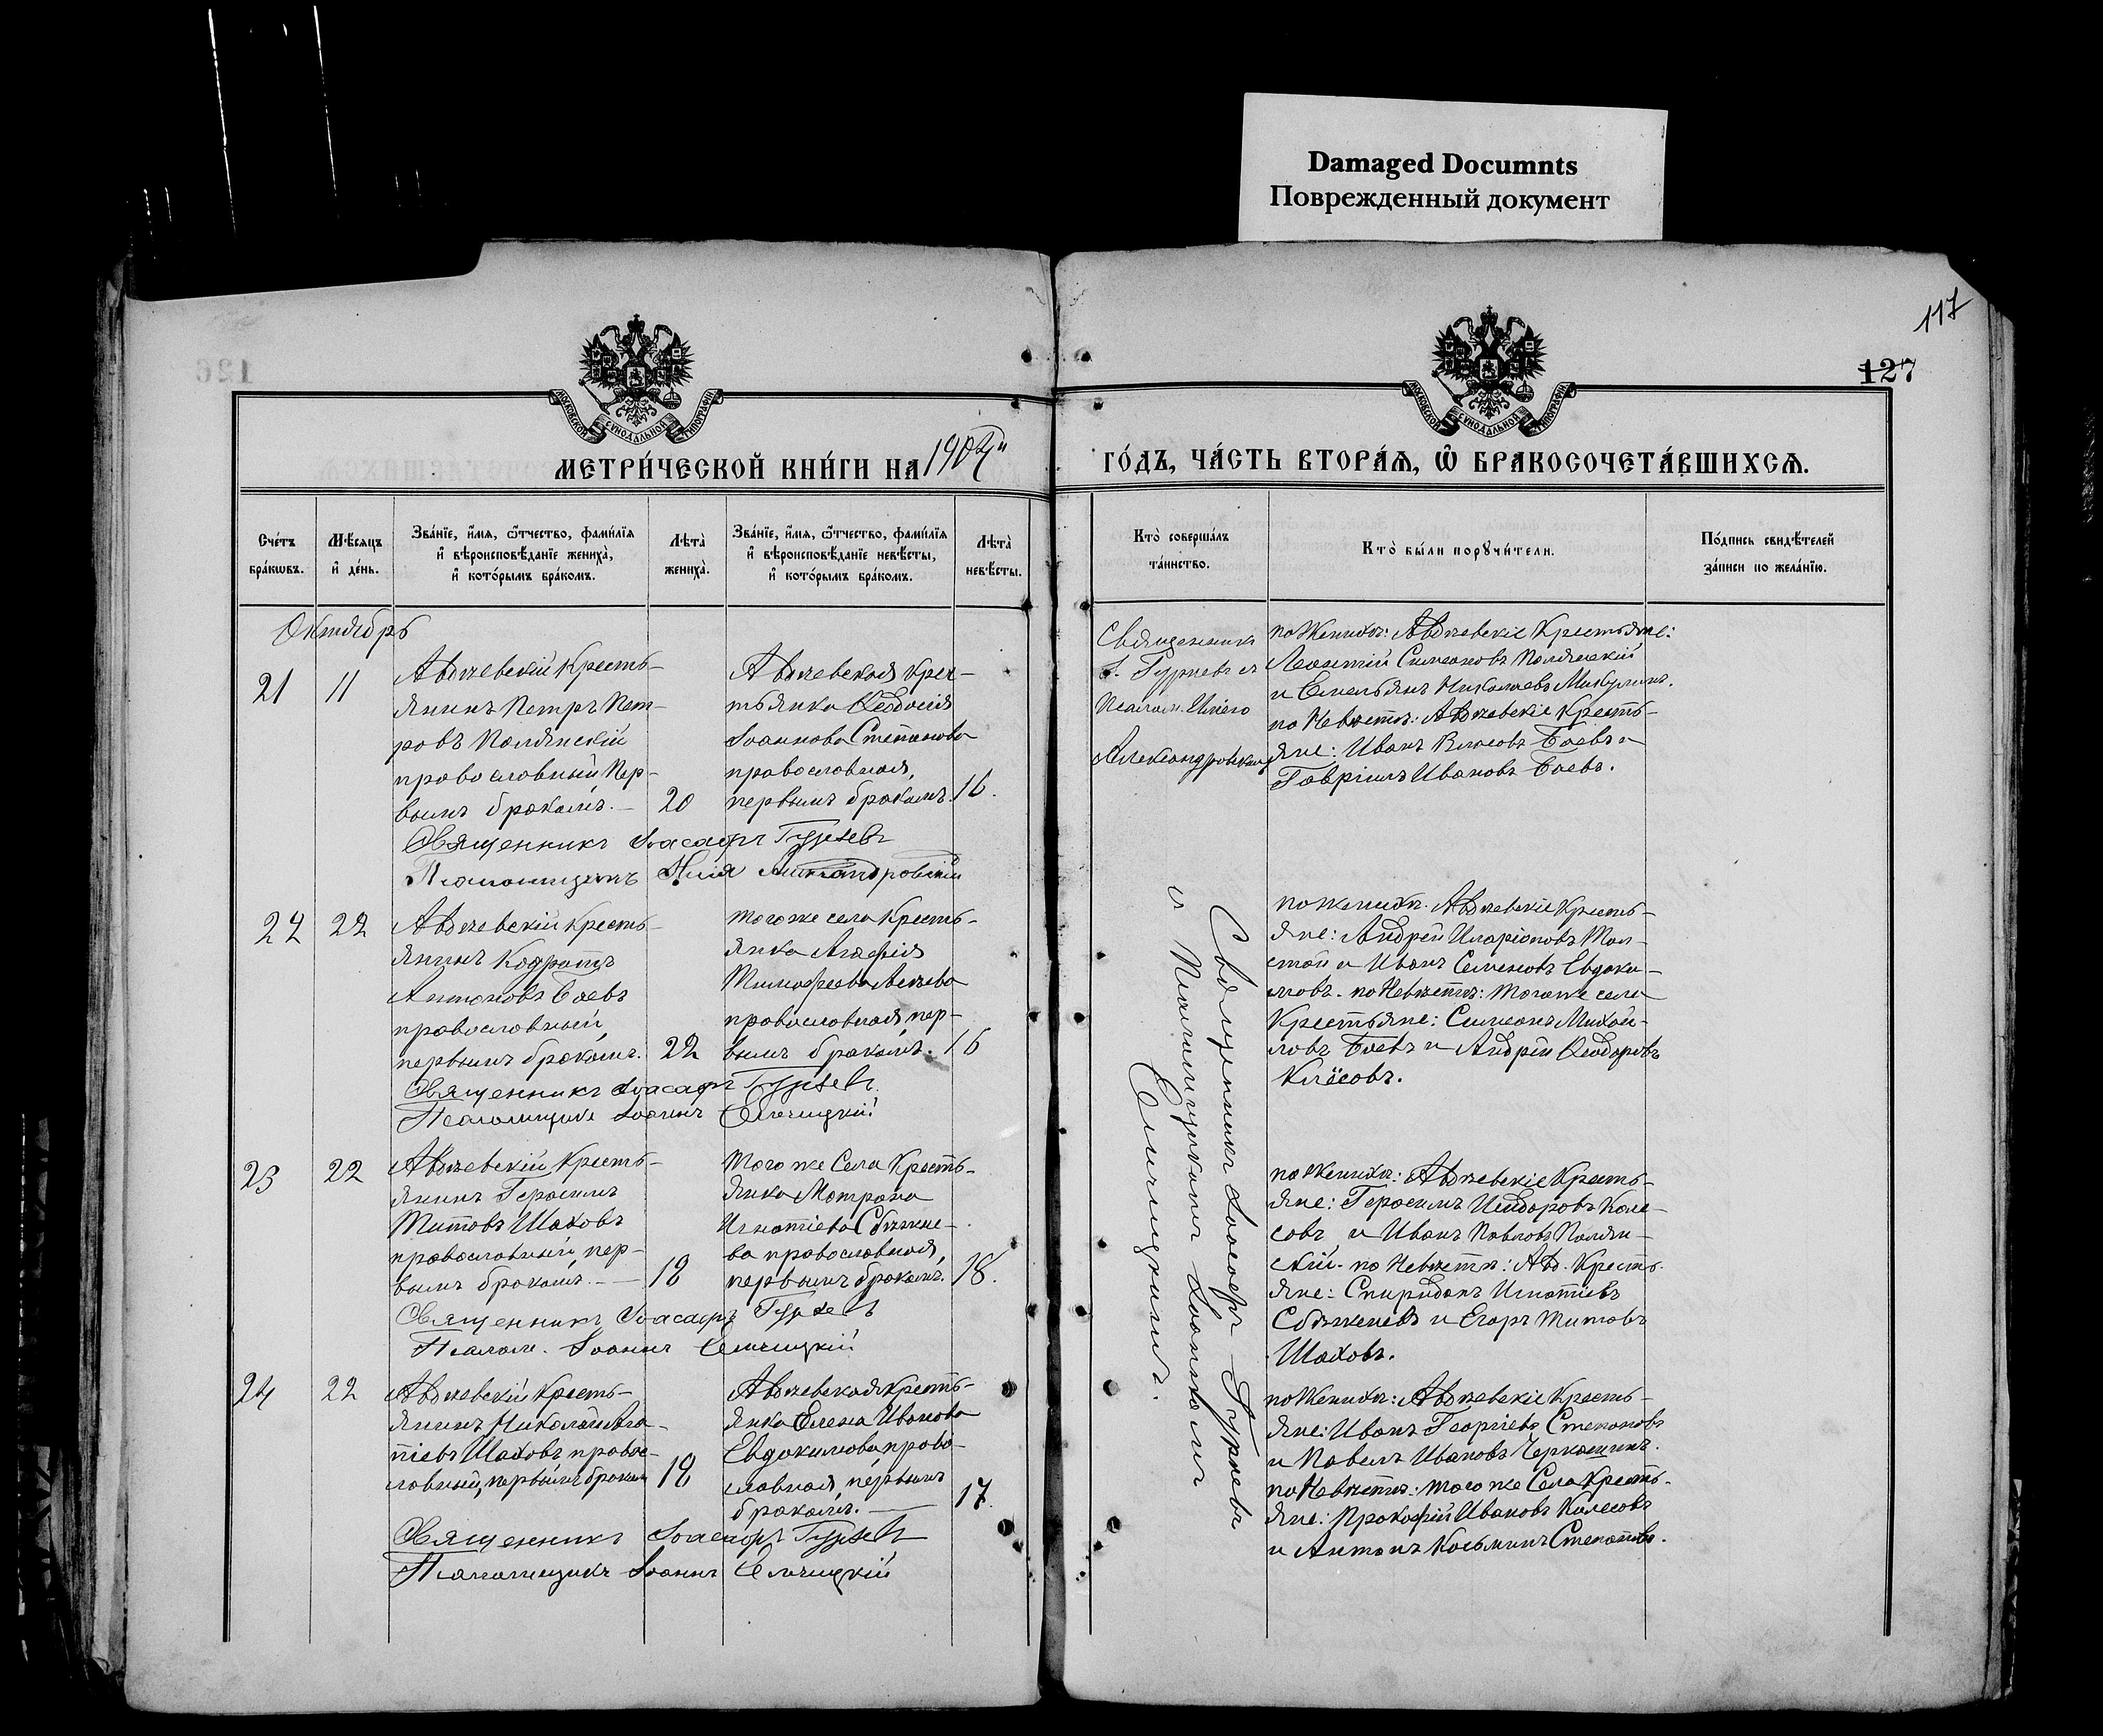 Damaged Documnts
Поврежденный документ
117
127
МОСКОВСКОЙ СѴНОДАЛЬНОЙ ТИПОГРАФІИ
МОСКОВСКОЙ СѴНОДАЛЬНОЙ ТИПОГРАФІИ
МЕТРИ́ЧЕСКОЙ КНИ́ГИ НА 1904й
ГО́ДЪ, ЧА́СТЬ ВТОРА́Ѧ, Ѡ҆ БРАКОСОЧЕТА́ВШИХСѦ.
Сче́тъ
бра́кѡвъ.
Мѣ́сяцъ
и҆ де́нь.
Зва́нїе, и҆́мя, ѻ҆́тчество, фами́лїя
и҆ вѣроисповѣ́данїе жениха̀,
и҆ кото́рымъ бра́комъ.
Лѣта̀
жениха̀.
Зва́нїе, и҆́мя, ѻ҆́тчество, фами́лїя
и҆ вѣроисповѣ́данїе невѣ́сты,
и҆ кото́рымъ бра́комъ.
Лѣта̀
невѣ́сты.
Кто̀ соверша́лъ
та́инство.
Кто̀ бы́ли порꙋчи́тели.
По́дпись свидѣ́телей
за́писи по жела́нїю.
Октябрь
21
11
Авдѣевскій кресть-
янинъ Петръ Пет-
ровъ Полянскій
православный пер-
вымъ бракомъ. —
20
Авдѣевская крес-
тьянка Ѳеодосія
Іоаннова Степанова
православная,
первымъ бракомъ.
16.
Священникъ
І. Гурьевъ и
Псалом. Илія
Александровскій
по женихѣ: Авдѣевскіе крестьяне:
Леонтій Симеоновъ Полянскій
и Емельянъ Николаевъ Микулинъ.
по невѣстѣ: Авдѣевскіе кресть-
яне: Иванъ Власовъ Боевъ и
Гавріилъ Ивановъ Боевъ.
Священникъ Іоасафъ Гурьевъ
Псаломщикъ Илія Александровскій
22
22
Авдѣевскій кресть-
янинъ Кодратъ
Антоновъ Боевъ
православный,
первымъ бракомъ.
22
того же села кресть-
янка Агафія
Тимофеева
православная, пер-
вымъ бракомъ.
16
по женихѣ: Авдѣевскіе кресть-
яне: Андрей Иларіоновъ Тол-
стой и Иванъ Семеновъ Евдоки-
мовъ. по невѣстѣ: того же села
крестьяне: Симеонъ Михай-
ловъ Боевъ и Андрей Ѳеодоровъ
Колесовъ.
Священникъ Іоасафъ Гурьевъ
Псаломщикъ Іоаннъ Ельчицкій
23
22
Авдѣевскій кресть-
янинъ Герасимъ
Титовъ Шаховъ
православный, пер-
вымъ бракомъ. —
18
того же села кресть-
янка Матрона
Игнатіева Сбѣжне-
ва православная,
первымъ бракомъ.
18.
по женихѣ: Авдѣевскіе кресть-
яне: Герасимъ Исидоровъ Коле-
совъ и Иванъ Павловъ Полян-
скій. по невѣстѣ: Авд. кресть-
яне: Спиридонъ Игнатіевъ
Сбѣжневъ и Егоръ Титовъ
Шаховъ.
Священникъ Іоасафъ Гурьевъ
Псалом. Іоаннъ Ельчицкій
Священникъ Іоасафъ Гурьевъ
и Псаломщикомъ Іоанномъ
Ельчицкимъ.
24
22
Авдѣевскій кресть-
янинъ Николай Ига-
тіевъ Шаховъ правос-
лавный, первымъ браком
18
Авдѣевская кресть-
янка Елена Иванова
Евдокимова право-
славная, первымъ
бракомъ. —
17.
по женихѣ: Авдѣевскіе кресть-
яне: Иванъ Георгіевъ Степановъ
и Павелъ Ивановъ Черкашинъ.
по невѣстѣ: того же села кресть-
яне: Прокофій Ивановъ Колесовъ
и Антонъ Косьминъ Степановъ.
Священникъ Іоасафъ Гурьевъ
Псаломщикъ Іоаннъ Ельчицкій